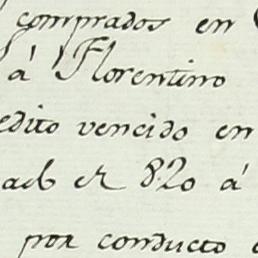 comprados en
á Florentino
edito vencido en
820 á
por conducto